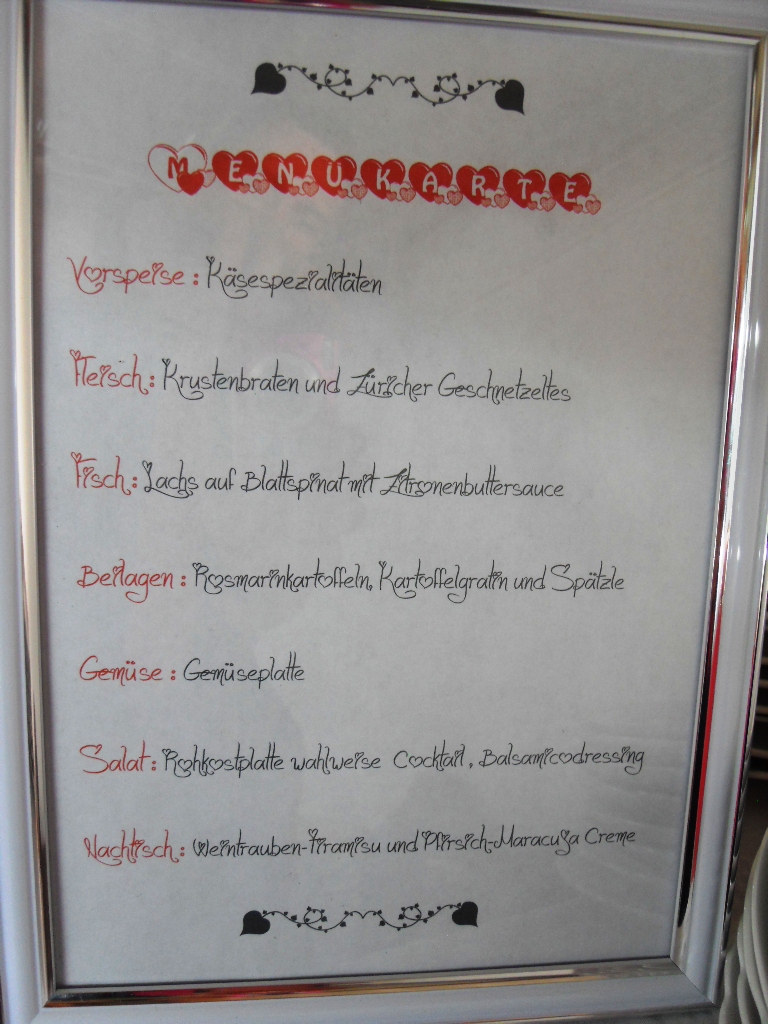 MENÜKARTE
Vorspeise: Käsespezialitäten
Fleisch: Krustenbraten und Züricher Geschnetzeltes
Fisch: Lachs auf Blattspinat mit Zitronenbuttersauce
Beilagen: Rosmarinkartoffeln, Kartoffelgratin und Spätzle
Gemüse: Gemüseplatte
Salat: Rohkostplatte wahlweise Cocktail, Balsamicodressing
Nachtisch: Weintrauben-Tiramisu und Pfirsich-Maracuja Creme